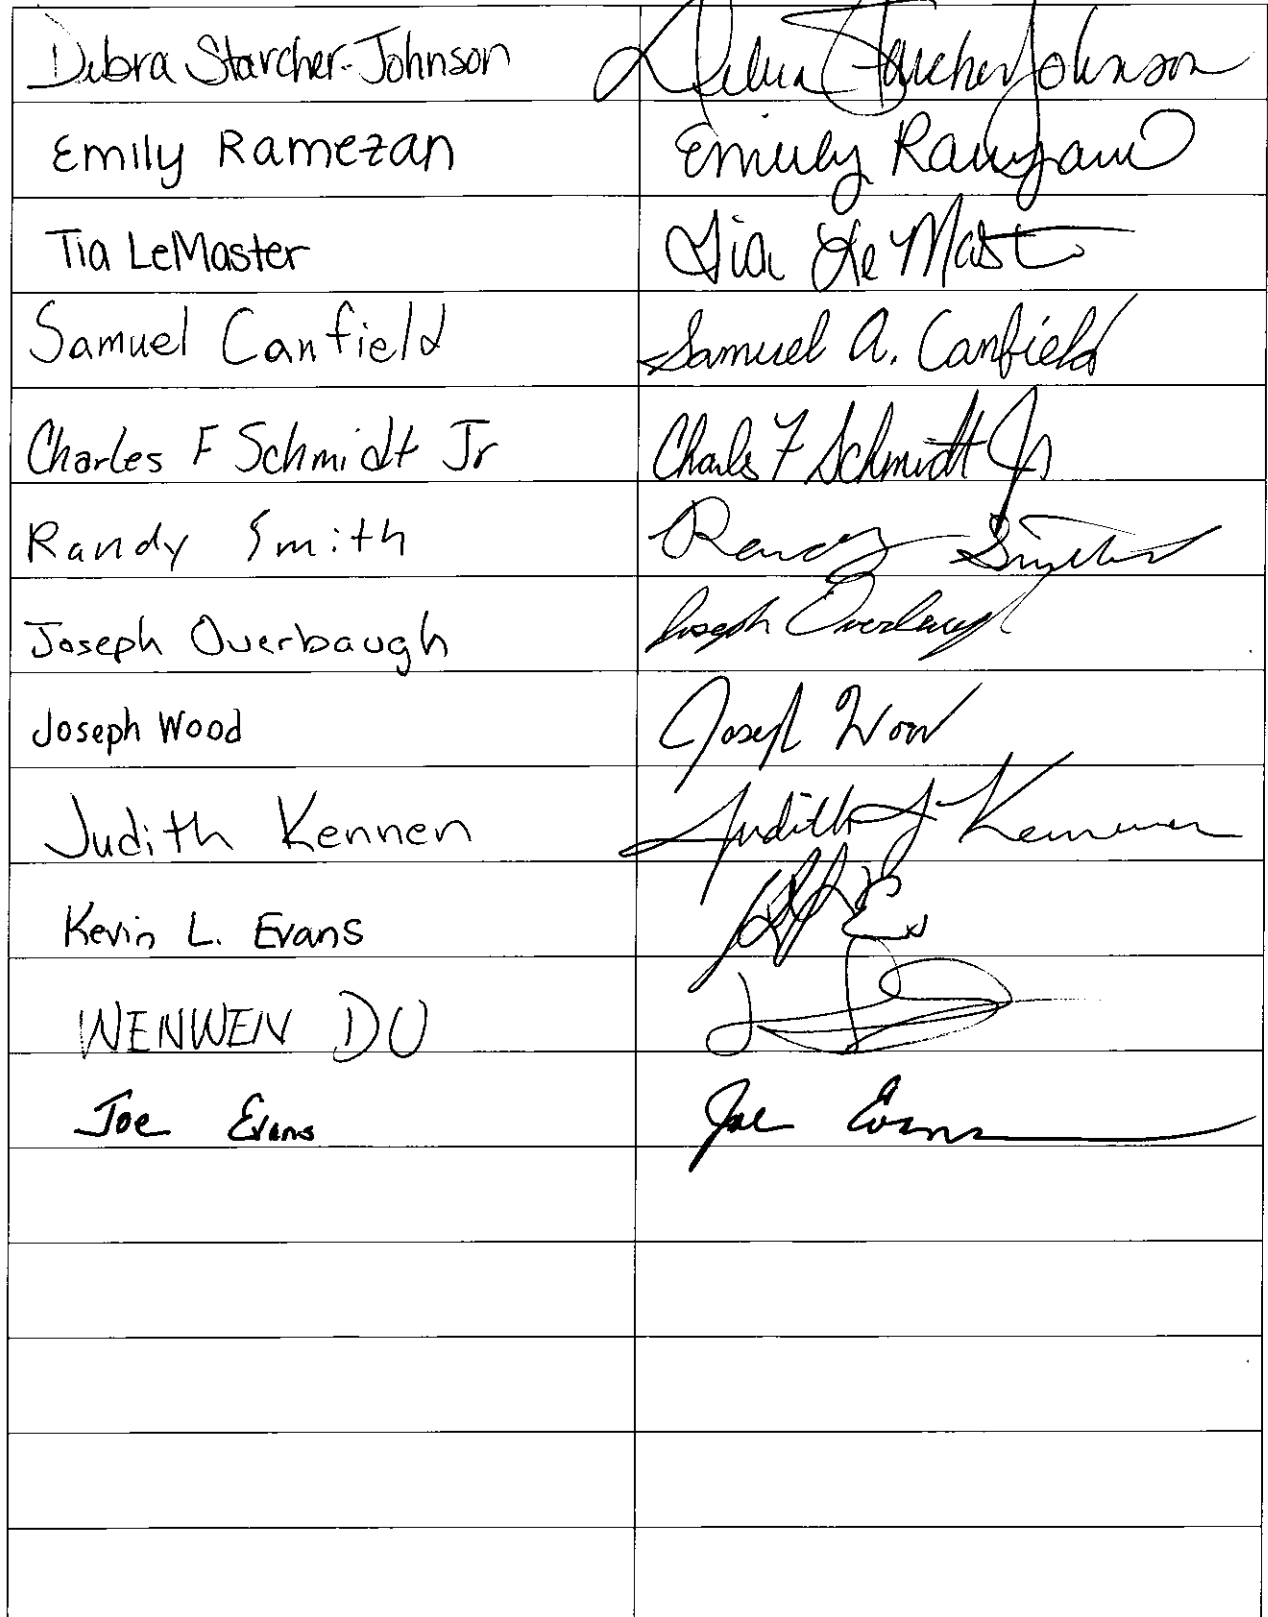 Debra Starcher-Johnson Debra Starcher Johnson
Emily Ramezan Emily Ramezan
Tia LeMaster Tia LeMast
Samuel Canfield Samuel A. Canfield
Charles F Schmidt Jr Charles F Schmidt Jr
Randy Smith Randy Smith
Joseph Overbaugh Joseph Overbaugh
Joseph Wood Joseph Wood
Judith Kennen Judith J Kennen
Kevin L. Evans
WENWEN DU
Joe Evans Joe Evans